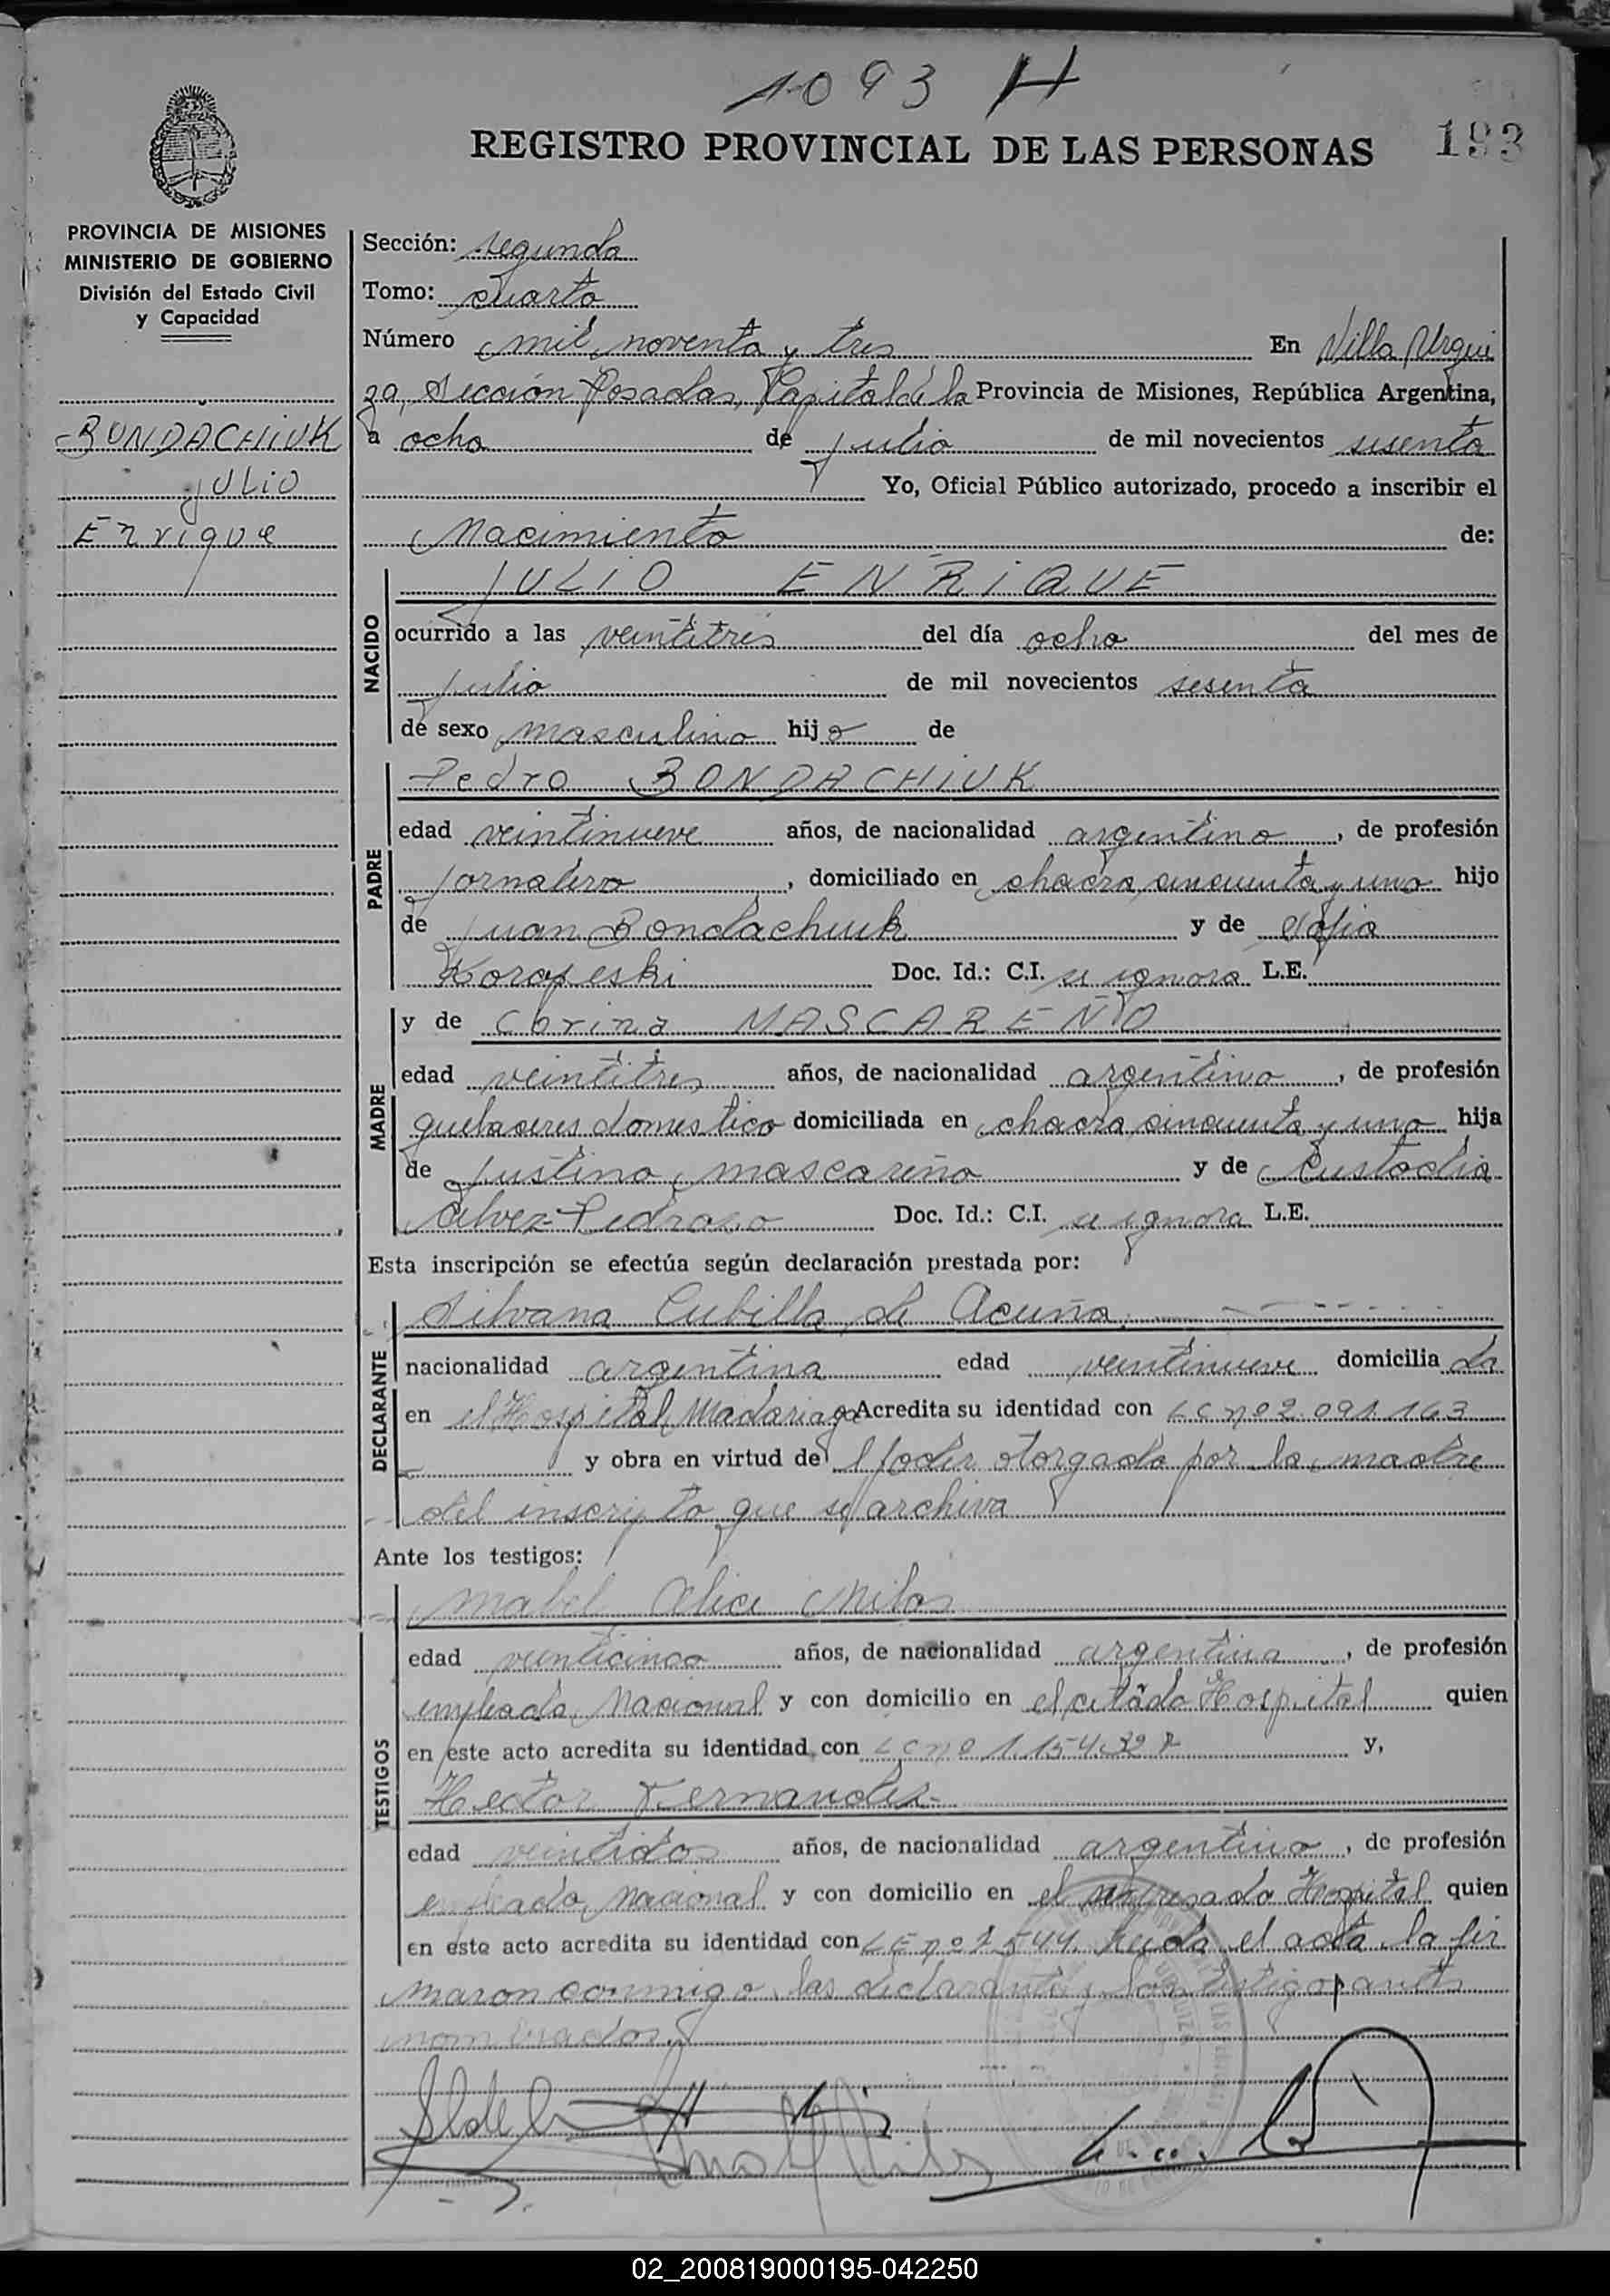 1093 H
REGISTRO PROVINCIAL DE LAS PERSONAS 193
PROVINCIA DE MISIONES
MINISTERIO DE GOBIERNO
División del Estado Civil
y Capacidad
BONDACHIUK
JULIO
Enrique
Sección: segunda
Tomo: cuarto
Número mil noventa y tres En Villa Urqui
za, Sección Posadas, Capital de la Provincia de Misiones, República Argentina,
a ocho de julio de mil novecientos sesenta
Yo, Oficial Público autorizado, procedo a inscribir el
Nacimiento de:
NACIDO
JULIO ENRIQUE
ocurrido a las veintitres del día ocho del mes de
julio de mil novecientos sesenta
de sexo masculino hijo de
PADRE
Pedro BONDACHIUK
edad veintinueve años, de nacionalidad argentino, de profesión
jornalero, domiciliado en chacra cincuenta y uno hijo
de Juan Bondachiuk y de Sofia
Koropeski Doc. Id.: C.I. se ignora L.E.
MADRE
y de Corina MASCAREÑO
edad veintitres años, de nacionalidad argentina, de profesión
quehaceres domestico domiciliada en chacra cincuenta y uno hija
de Justino mascareño y de Custodia
Alvez Pedrozo Doc. Id.: C.I. se ignora L.E.
Esta inscripción se efectúa según declaración prestada por:
DECLARANTE
Silvana Cubilla de Acuña.
nacionalidad argentina edad veintinueve domicilia da
en el Hospital Madariaga Acredita su identidad con LC nº 2.091.163
y obra en virtud del poder otorgado por la madre
del inscripto que se archiva
Ante los testigos:
TESTIGOS
Mabel Alice Milos
edad veinticinco años, de nacionalidad argentina, de profesión
empleada Nacional y con domicilio en el citado Hospital quien
en este acto acredita su identidad con LC nº 1.154.32 y,
Hector Fernandes
edad veintidos años, de nacionalidad argentino, de profesión
empleado Nacional y con domicilio en el expresado Hospital quien
en este acto acredita su identidad con LE nº 544. Leida el acta la fir
maron conmigo las declarante y los testigos antes
nombrados
02_200819000195-042250